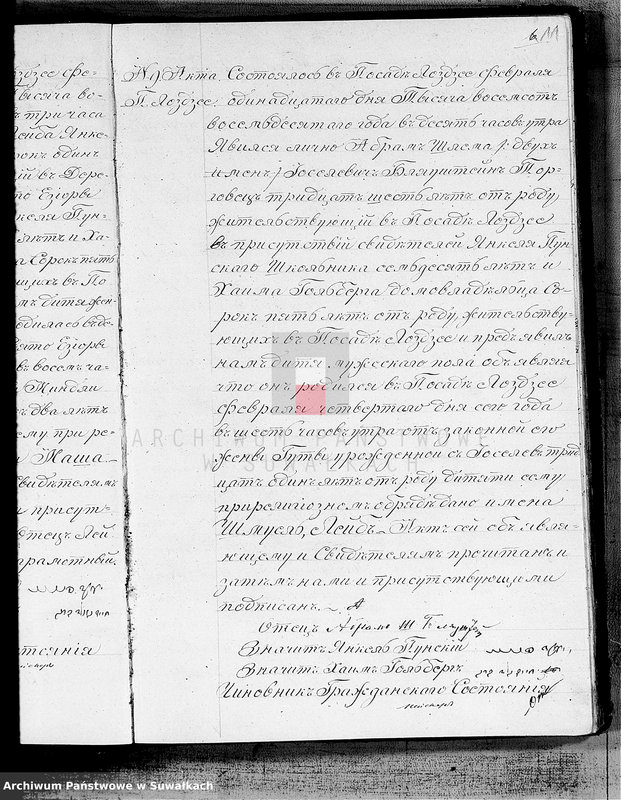 6
зздзее фе-
Тысяча во-
три часа
Лейба Янке-
рокъ одинъ
ій въ Дере-
но Езіоры
келя Пун-
лѣтъ и Ха-
а Сорокъ пять
щихъ въ По
мъ дитя жен-
одилась въ де-
ято Езіоры
въ восемъ ча-
Миндли
ть два лѣтъ
ему при ре-
и Маша.
Свидѣтелямъ
и присут-
Отецъ Лей
грамотный.
тоянія
№ 9. Акта. Состоялось въ Посадѣ Лоздзее февраля
П. Лоздзее. одинадцатаго дня Тысяча восемсотъ
восемьдесятаго года въ десять часовъ утра
Явился лично Абрамъ Шлема /: двухъ
именъ:/ Іоселевичъ Бляуштейнъ Тор-
говецъ тридцать шесть лѣтъ отъ роду
жительствующій въ Посадѣ Лоздзее
въ присутствіи свидѣтелей Янкеля Пун-
скаго Школьника семьдесятъ лѣтъ и
Хаима Гольберга домовладѣльца Со-
рокъ пять лѣтъ отъ роду, жительству-
ющихъ въ Посадѣ Лоздзее и предъявилъ
намъ дитя мужескаго пола объявляя
что онъ родился въ Посадѣ Лоздзее
февраля четвертаго дня сего года
въ шесть часовъ утра отъ законной его
жены Гутвы урожденной съ Іоселевъ трид
цать одинъ лѣтъ отъ роду дитяти сему
при религіозномъ обрядѣ дано имена
Шмуель, Лейбъ. Актъ сей объявля-
ющему и Свидѣтелямъ прочитанъ и
затѣмъ нами и присутствующими
подписанъ.
Отецъ Абрамъ Ш
Значитъ Янкель Пунскій
Значитъ Хаимъ Гольбергъ
Чиновникъ Гражданскаго Состоянія
ARCHIWUM PAŃSTWOWE
W SUWAŁKACH
Archiwum Państwowe w Suwałkach